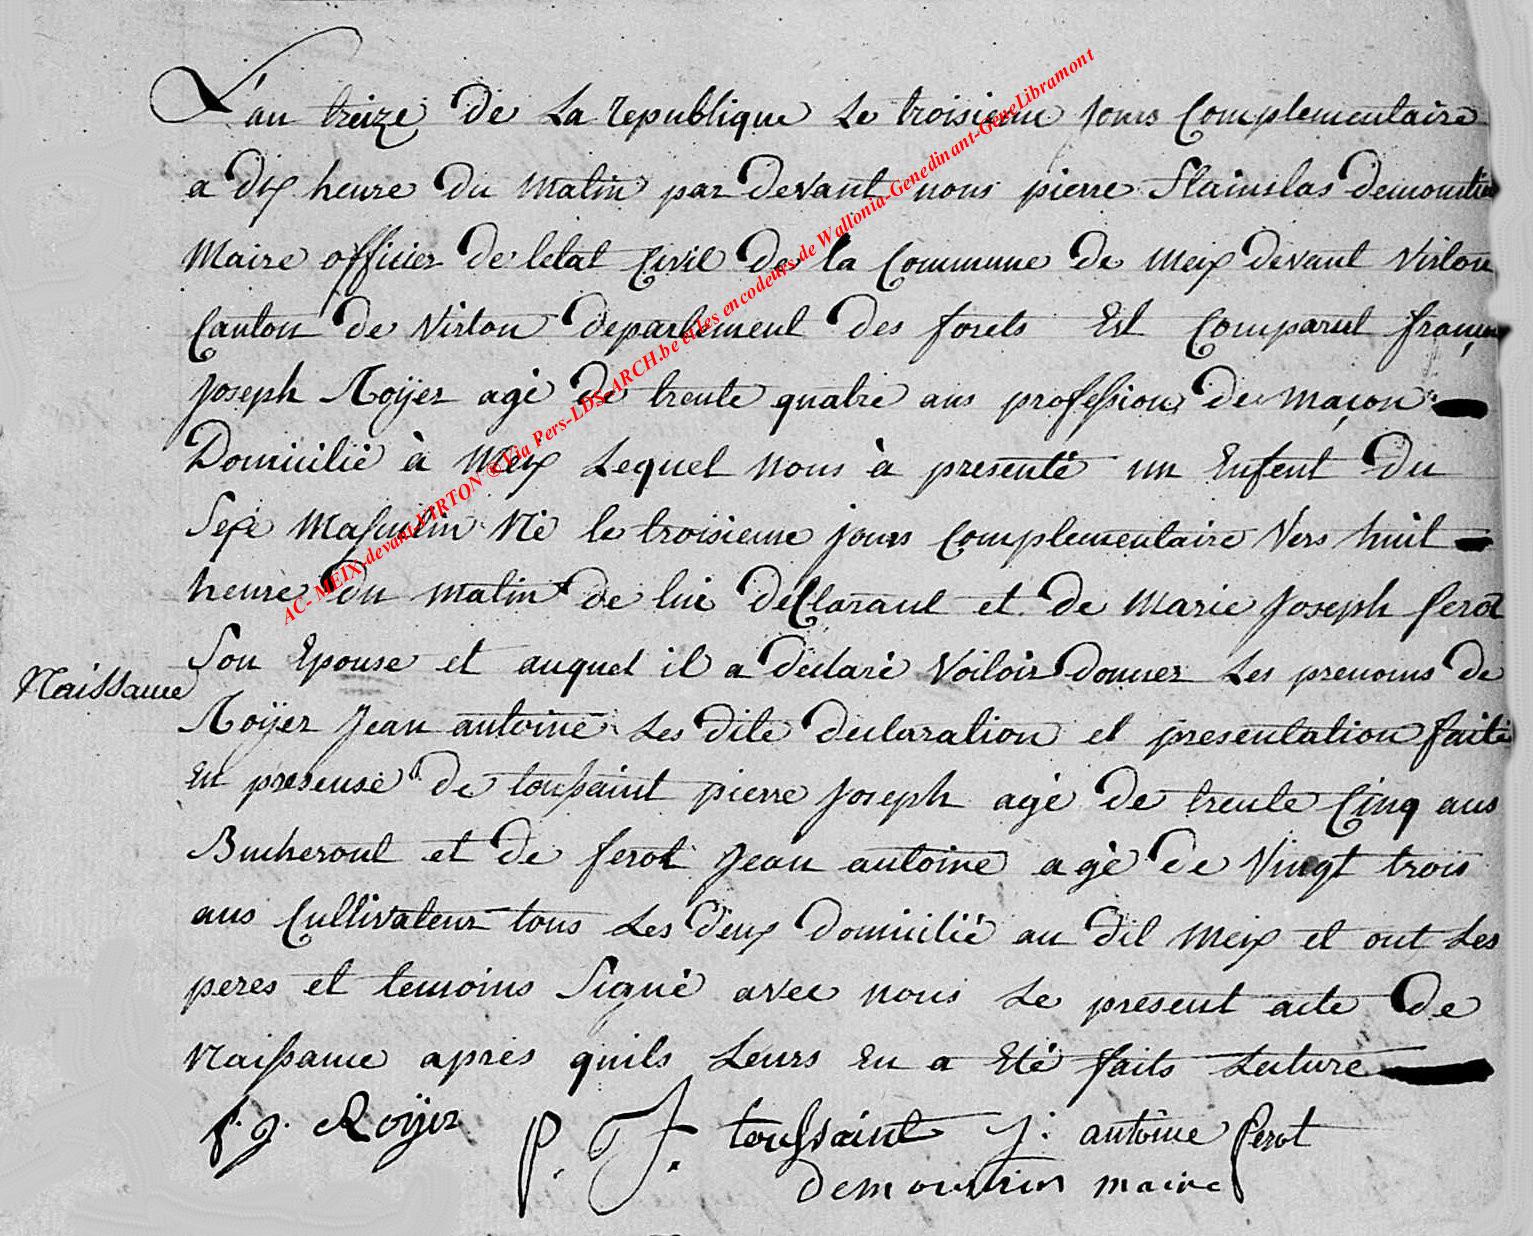 L'an treize de La republique Le troisieme jours Complementaire
a dix heure du matin par devant nous pierre Stainslas demoustiers
Maire officier de l'etat Civil de la Commune de Meix devant Virton
Canton de Virton departement des forets Est Comparut françois
Joseph Roÿer agé de trente quatre ans profession de maçon
Domicilié à Meix Lequel nous à presenté un Enfent du
Sexe Masculin Né le troisieme jours Complementaire Vers huit
heure du matin de lui deClarant et de Marie Joseph ferot
Son Epouse et auquel il a déclaré Voiloir donner Les prenoms de
Naissance
Roÿer Jean antoine Les dite declaration et presentation faite
En presense de toussaint pierre Joseph agé de trente Cinq ans
Bucheront et de ferot Jean antoine agé de Vingt trois
ans Cultivateur tous Les deux domicilié au dit Meix et ont Les
peres et temoins Signé avec nous Le present acte de
Naissance aprés quils Leurs En a Eté faits Lecture
f. J. Roÿer p. J. toussaint J: antoine ferot
maire
AC- MEIX-devant-VIRTON ©Via Pers-LDS-ARCH.be et les encodeurs de Wallonia-Genedinant-GeneLibramont